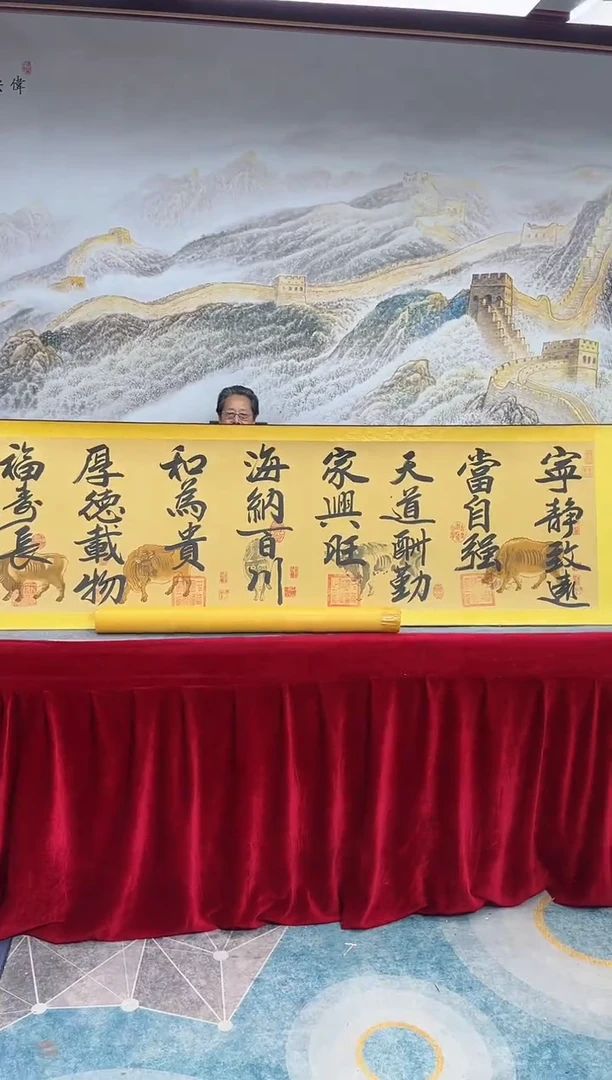 寧静致遠
當自强
天道酬勤
家興旺
海納百川
和為貴
厚德載物
福寿長
偉